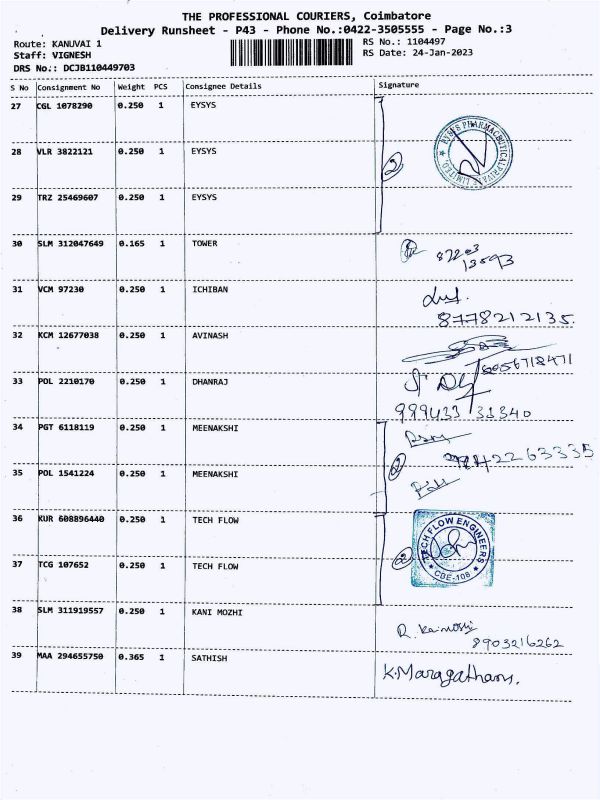 THE PROFESSIONAL COURIERS, Coimbatore
Delivery Runsheet - P43 - Phone No.:0422-3505555 - Page No.:3
Route: KANUVAI 1
RS No.: 1104497
Staff: VIGNESH
RS Date: 24-Jan-2023
DRS No.: DCJB110449703
S No Consignment No Weight PCS Consignee Details Signature
27 CGL 1078290 0.250 1 EYSYS
EYSYS PHARMACEUTICAL PRIVATE LIMITED
28 VLR 3822121 0.250 1 EYSYS
29 TRZ 25469607 0.250 1 EYSYS
30 SLM 312047649 0.165 1 TOWER
31 VCM 97230 0.250 1 ICHIBAN
8778212135.
32 KCM 12677038 0.250 1 AVINASH
33 POL 2210170 0.250 1 DHANRAJ
999433 33340
34 PGT 6118119 0.250 1 MEENAKSHI
35 POL 1541224 0.250 1 MEENAKSHI
36 KUR 608896440 0.250 1 TECH FLOW
TECH FLOW ENGINEERS
CBE-108
37 TCG 107652 0.250 1 TECH FLOW
38 SLM 311919557 0.250 1 KANI MOZHI
8903216262
39 MAA 294655750 0.365 1 SATHISH
K.Maragatham.